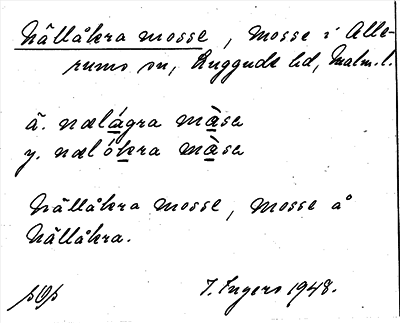 Nällåkra mosse, mosse i Alle-
rums sn, Luggude hd, Malm. l.
ä. nælágra màse
y. nælókra màse
Nällåkra mosse, mosse å
Nällåkra.
I. Ingers 1948.